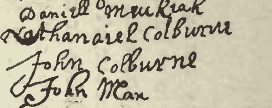 Daniell Muckiak
Nathanaiel Colburne
John Colburne
John Man